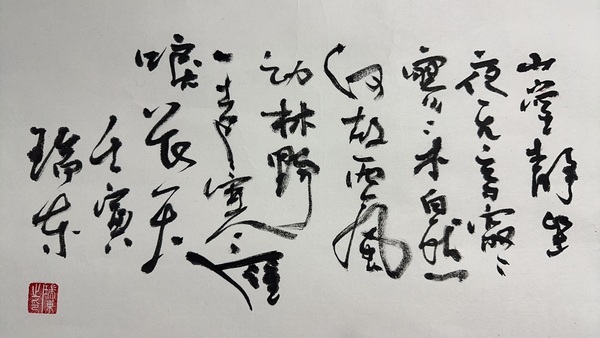 山堂靜坐
夜无言寂〻
寥〻本自然
何故西風
动林野
一声寒雁
唳长天
壬寅
瑞东